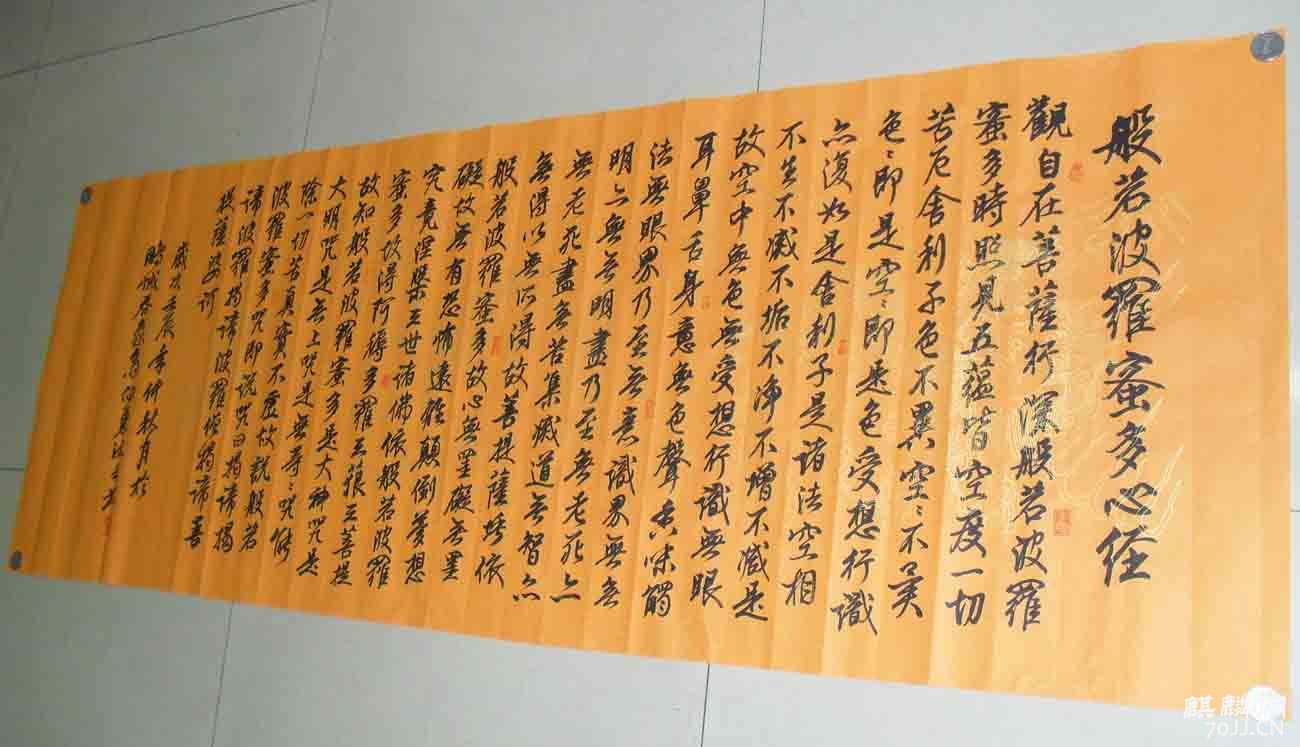 般若波羅蜜多心経
觀自在菩薩行深般若波羅
蜜多時照見五蘊皆空度一切
苦厄舍利子色不異空〻不異
色〻即是空〻即是色受想行識
亦復如是舍利子是諸法空相
不生不滅不垢不淨不增不減是
故空中無色無受想行識無眼
耳鼻舌身意無色聲香味觸
法無眼界乃至無意識界無無
明亦無無明盡乃至無老死亦
無老死盡無苦集滅道無智亦
無得以無所得故菩提薩埵依
般若波羅蜜多故心無罣礙無罣
礙故無有恐怖遠離顛倒夢想
究竟涅槃三世諸佛依般若波羅
蜜多故得阿耨多羅三藐三菩提
故知般若波羅蜜多是大神咒是
大明咒是無上咒是無等〻咒能
除一切苦真實不虛故說般若
波羅蜜多咒即說咒曰揭諦揭
諦波羅揭諦波羅僧揭諦菩
提薩婆訶
歲次壬辰年仲秋月於
麒麟网
70JJ.CN